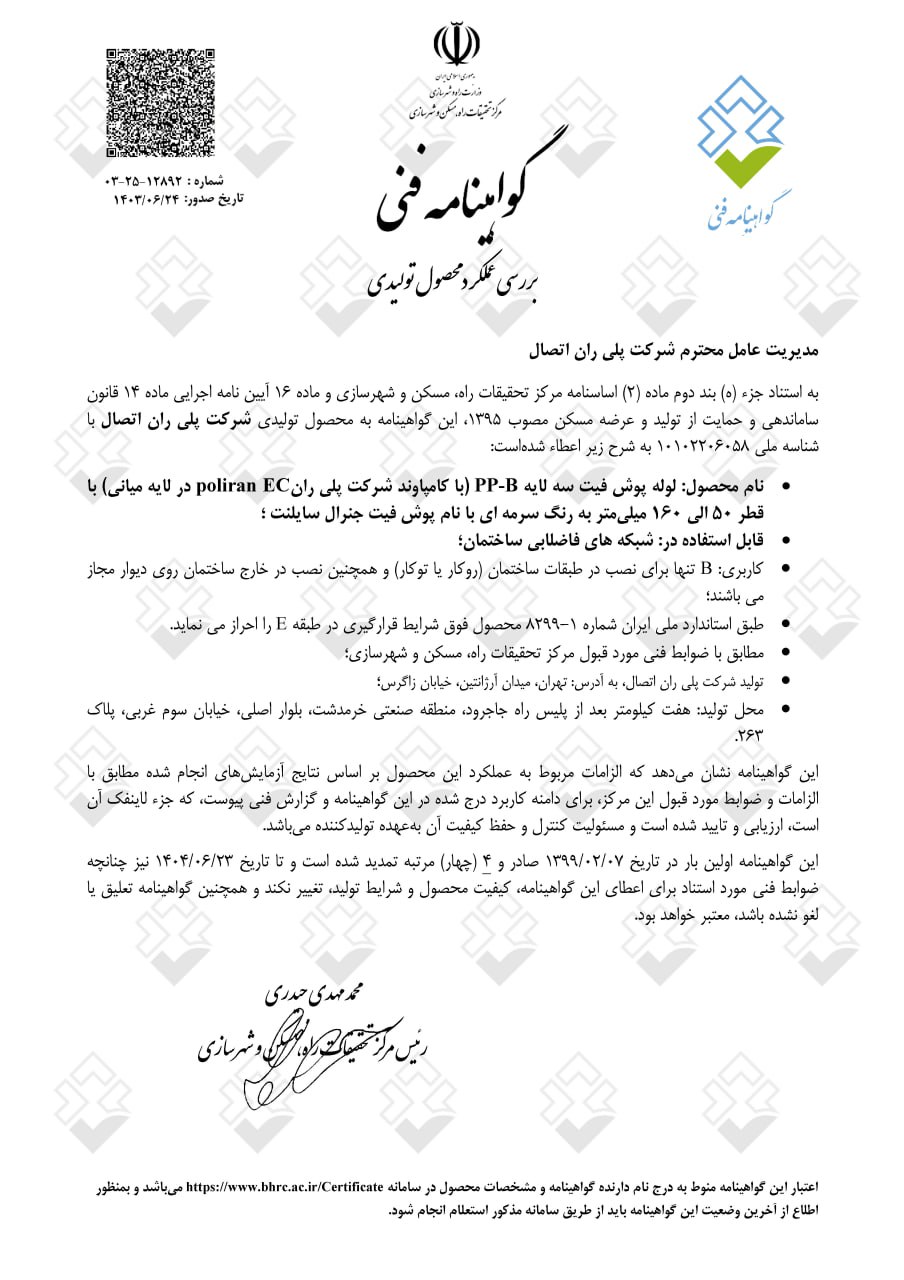 جمهوری اسلامی ایران
وزارت راه و شهرسازی
مرکز تحقیقات راه، مسکن و شهرسازی
شماره : ۰۳-۲۵-۱۲۸۹۲
تاریخ صدور: ۱۴۰۳/۰۶/۲۴
گواهینامه فنی
گواهینامه فنی
بررسی عملکرد محصول تولیدی
مدیریت عامل محترم شرکت پلی ران اتصال
به استناد جزء (ه) بند دوم ماده (۲) اساسنامه مرکز تحقیقات راه، مسکن و شهرسازی و ماده ۱۶ آیین نامه اجرایی ماده ۱۴ قانون
ساماندهی و حمایت از تولید و عرضه مسکن مصوب ۱۳۹۵، این گواهینامه به محصول تولیدی شرکت پلی ران اتصال با
شناسه ملی ۱۰۱۰۲۲۰۶۰۵۸ به شرح زیر اعطاء شده‌است:
• نام محصول: لوله پوش فیت سه لایه PP-B (با کامپاوند شرکت پلی ران poliran EC در لایه میانی) با
قطر ۵۰ الی ۱۶۰ میلی‌متر به رنگ سرمه ای با نام پوش فیت جنرال سایلنت ؛
• قابل استفاده در: شبکه های فاضلابی ساختمان؛
• کاربری: B تنها برای نصب در طبقات ساختمان (روکار یا توکار) و همچنین نصب در خارج ساختمان روی دیوار مجاز
می باشند؛
• طبق استاندارد ملی ایران شماره ۱-۸۲۹۹ محصول فوق شرایط قرارگیری در طبقه E را احراز می نماید.
• مطابق با ضوابط فنی مورد قبول مرکز تحقیقات راه، مسکن و شهرسازی؛
• تولید شرکت پلی ران اتصال، به آدرس: تهران، میدان آرژانتین، خیابان زاگرس؛
• محل تولید: هفت کیلومتر بعد از پلیس راه جاجرود، منطقه صنعتی خرمدشت، بلوار اصلی، خیابان سوم غربی، پلاک
۲۶۳.
این گواهینامه نشان می‌دهد که الزامات مربوط به عملکرد این محصول بر اساس نتایج آزمایش‌های انجام شده مطابق با
الزامات و ضوابط مورد قبول این مرکز، برای دامنه کاربرد درج شده در این گواهینامه و گزارش فنی پیوست، که جزء لاینفک آن
است، ارزیابی و تایید شده است و مسئولیت کنترل و حفظ کیفیت آن به‌عهده تولیدکننده می‌باشد.
این گواهینامه اولین بار در تاریخ ۱۳۹۹/۰۲/۰۷ صادر و ۴ (چهار) مرتبه تمدید شده است و تا تاریخ ۱۴۰۴/۰۶/۲۳ نیز چنانچه
ضوابط فنی مورد استناد برای اعطای این گواهینامه، کیفیت محصول و شرایط تولید، تغییر نکند و همچنین گواهینامه تعلیق یا
لغو نشده باشد، معتبر خواهد بود.
محمد مهدی حیدری
رئیس مرکز تحقیقات راه، مسکن و شهرسازی
اعتبار این گواهینامه منوط به درج نام دارنده گواهینامه و مشخصات محصول در سامانه https://www.bhrc.ac.ir/Certificate می‌باشد و بمنظور
اطلاع از آخرین وضعیت این گواهینامه باید از طریق سامانه مذکور استعلام انجام شود.